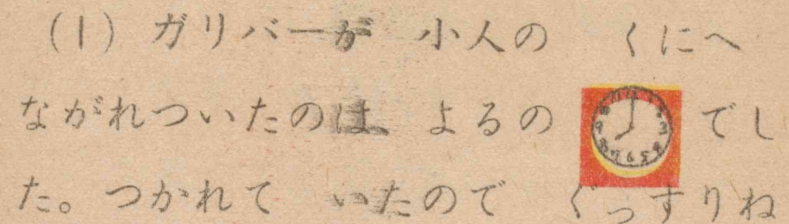 (1) ガリバーが 小人の くにへ
ながれついたのは、よるの でし
た。つかれて いたので ぐっすりね